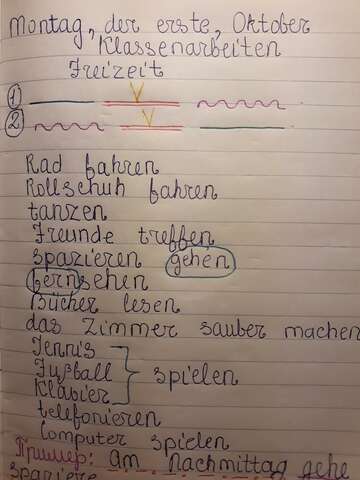 Montag, der erste, Oktober
Klassenarbeiten
Freizeit
1 V
2 V
Rad fahren
Rollschuh fahren
tanzen
Freunde treffen
spazieren gehen
fernsehen
Bücher lesen
das Zimmer sauber machen
Tennis
Fußball spielen
Klavier
telefonieren
Computer spielen
Пример: Am Nachmittag gehe
spaziere